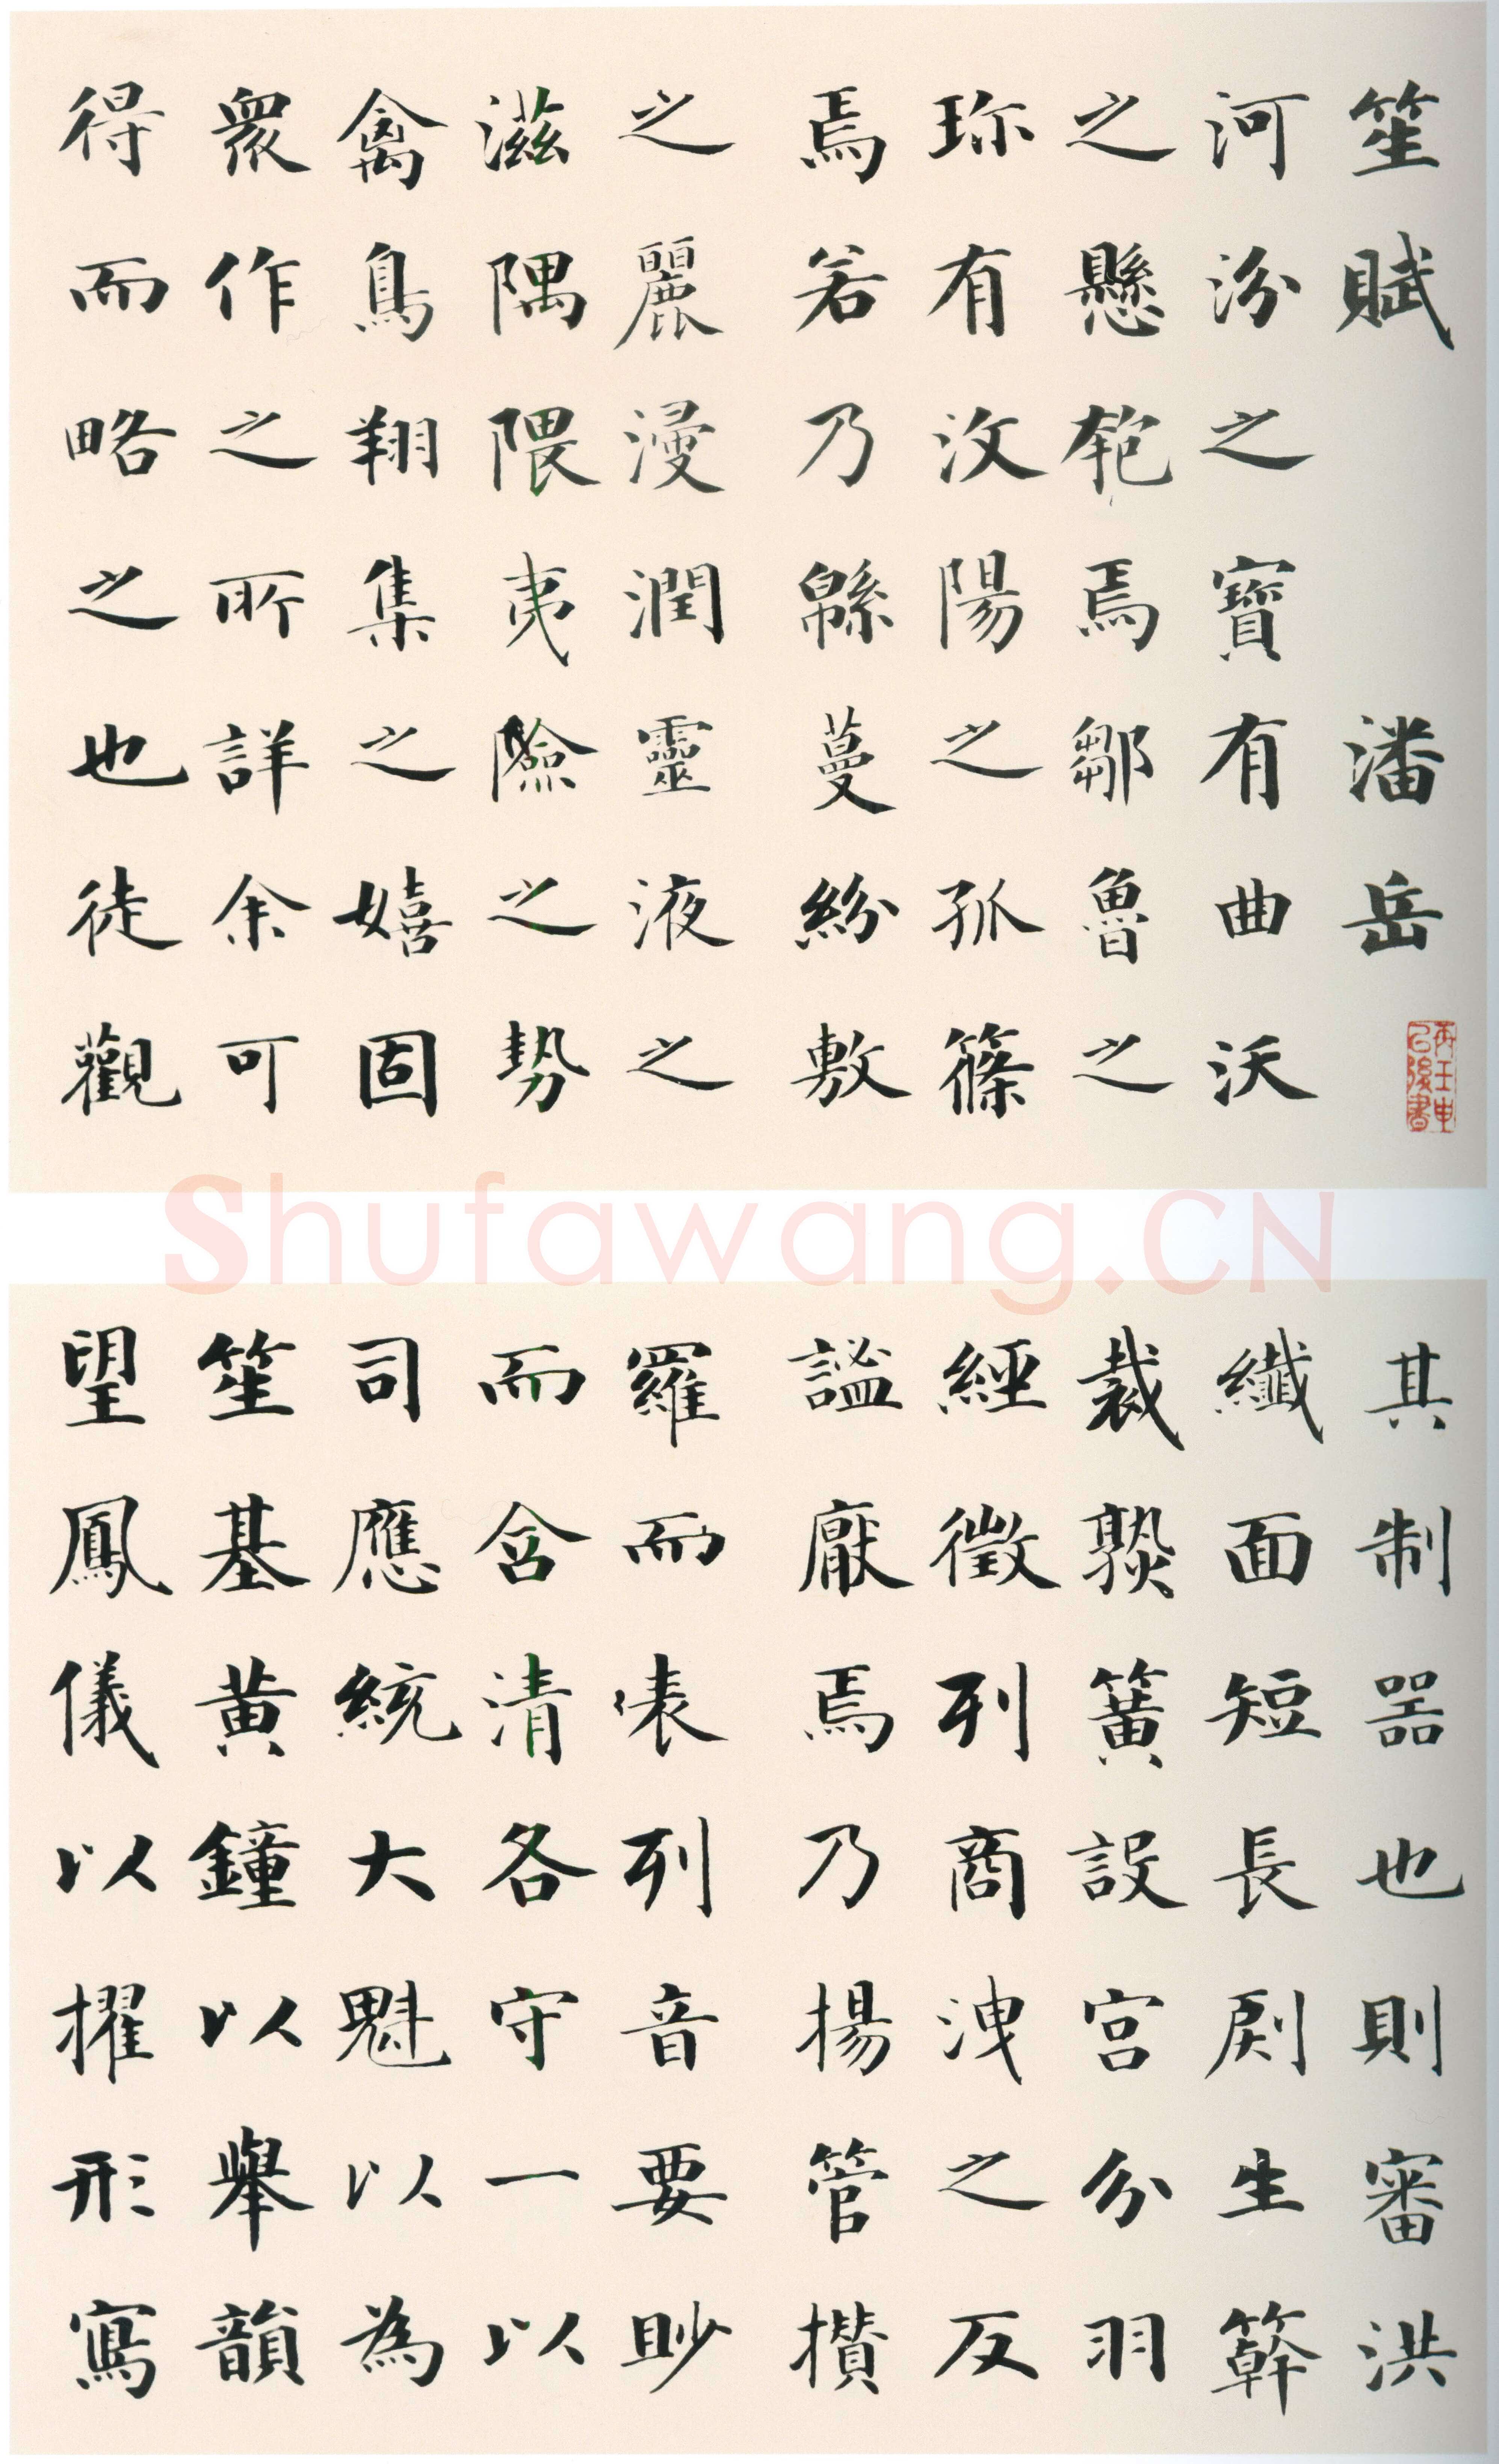 笙賦 潘岳
河汾之寶有曲沃
之懸匏焉鄒魯之
珎有汶陽之孤篠
焉若乃緜蔓紛敷
之麗浸潤靈液之
滋隅隈夷險之勢
禽鳥翔集之嬉固
衆作之所詳余可
得而略之也徒觀
Shufawang.CN
其制器也則審洪
纖面短長生簳
裁熟簧設宮分羽
經徵列商洩之反
謐厭焉乃揚管攢
羅而俵列音要眇
而含清各守一以
司應統大魁以為
笙基黃鐘以舉韻
望鳳儀以擢形寫